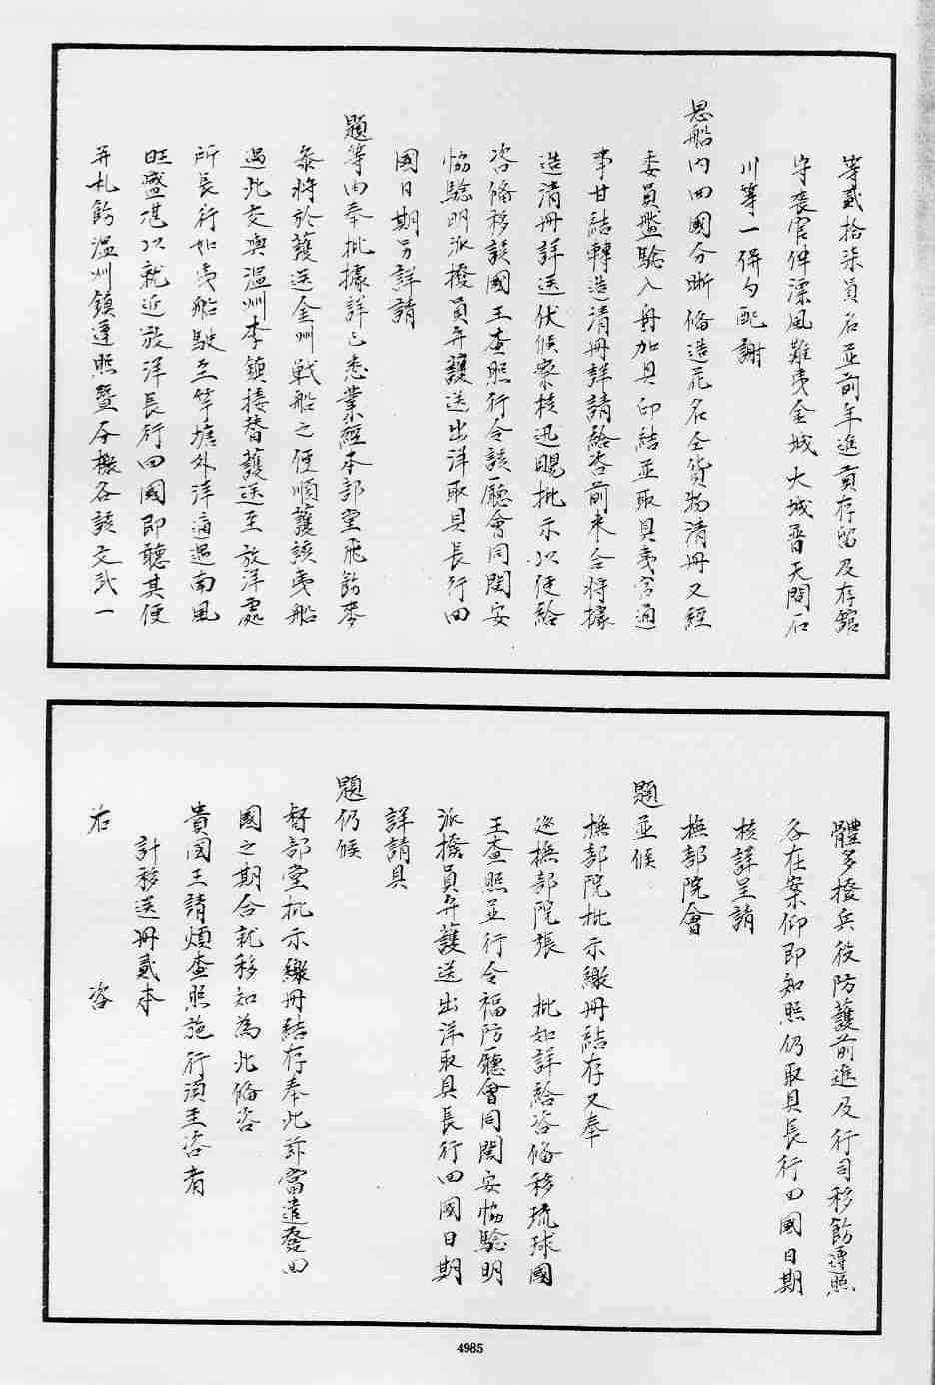 等貳拾柒員名並前年進貢存留及存館
守喪官伴漂風難夷金城大城晋天間石
川等一併勻配謝
恩船內回國分晰俻造花名仝貨物清冊又經
委員盤驗入冊加具印結並取具夷官通
事甘結轉造清冊詳請給咨前來合將據
造清冊詳送伏候察核迅賜批示以便給
咨俻移該國王查照行令該廳會同閩安
協驗明派撥員弁護送出洋取具長行回
國日期另詳請
題等由奉批據詳已悉業經本部堂飛飭麥
叅將於護送金州戰船之便順護該夷船
過北交與溫州李鎮接替護送至放洋處
所長行如夷船駛至竿塘外洋適遇南風
旺盛堪以就近放洋長行回國即聽其便
弁札飭溫州鎮遵照暨分檄各該文武一
體多撥兵役防護前進及行司移飭遵照
各在案仰即知照仍取具長行回國日期
核詳呈請
撫部院會
題並候
撫部院批示繳冊結存又奉
巡撫部院張 批如詳給咨俻移琉球國
王查照並行令福防廳會同閩安協驗明
派撥員弁護送出洋取具長行回國日期
詳請具
題仍候
督部堂批示繳冊結存奉此茲當遣發回
國之期合就移知為此俻咨
貴國王請煩查照施行須至咨者
計移送冊貳本
右 咨
4985